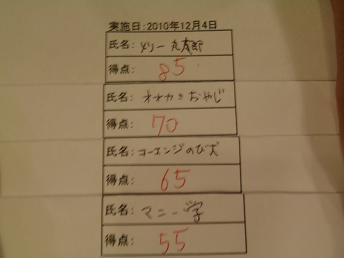 実施日:2010年12月4日
氏名: メリー 丸太郎
得点: 85
氏名: オオカミおやじ
得点: 70
氏名: コーエンジのび犬
得点: 65
氏名: マニー学
得点: 55